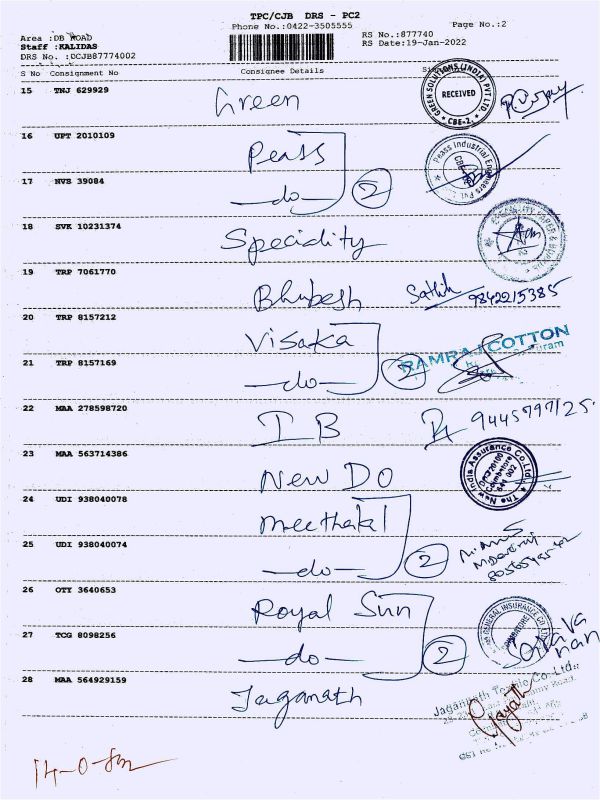 TPC/CJB DRS - PC2
Phone No.:0422-3505555
Page No.:2
Area :DB ROAD
Staff :KALIDAS
DRS No. :DCJB87774002
RS No.:877740
RS Date:19-Jan-2022
S No Consignment No Consignee Details
15 TNJ 629929 Green
GREEN SOLUTIONS (INDIA) PVT LTD.
RECEIVED
CBE-2.
16 UPT 2010109 Peass
Peass Industrial Engineers Pvt.
17 NVS 39084 —do— 2
18 SVK 10231374 Speciality
19 TRP 7061770 Bhubesh Sathish 9842215385
20 TRP 8157212 Visaka
RAMRAJ COTTON
21 TRP 8157169 —do— 2
22 MAA 278598720 I B 9445797125.
23 MAA 563714386 New DO
The New India Assurance Co.Ltd.
Coimbatore
641 002
24 UDI 938040078 Meethakal
25 UDI 938040074 —do— 2
26 OTY 3640653 Royal Sun
GENERAL INSURANCE CO.
27 TCG 8098256 —do— 2
Saravanan
28 MAA 564929159 Jaganath
Jagannath Textile Co. Ltd.
Gayath